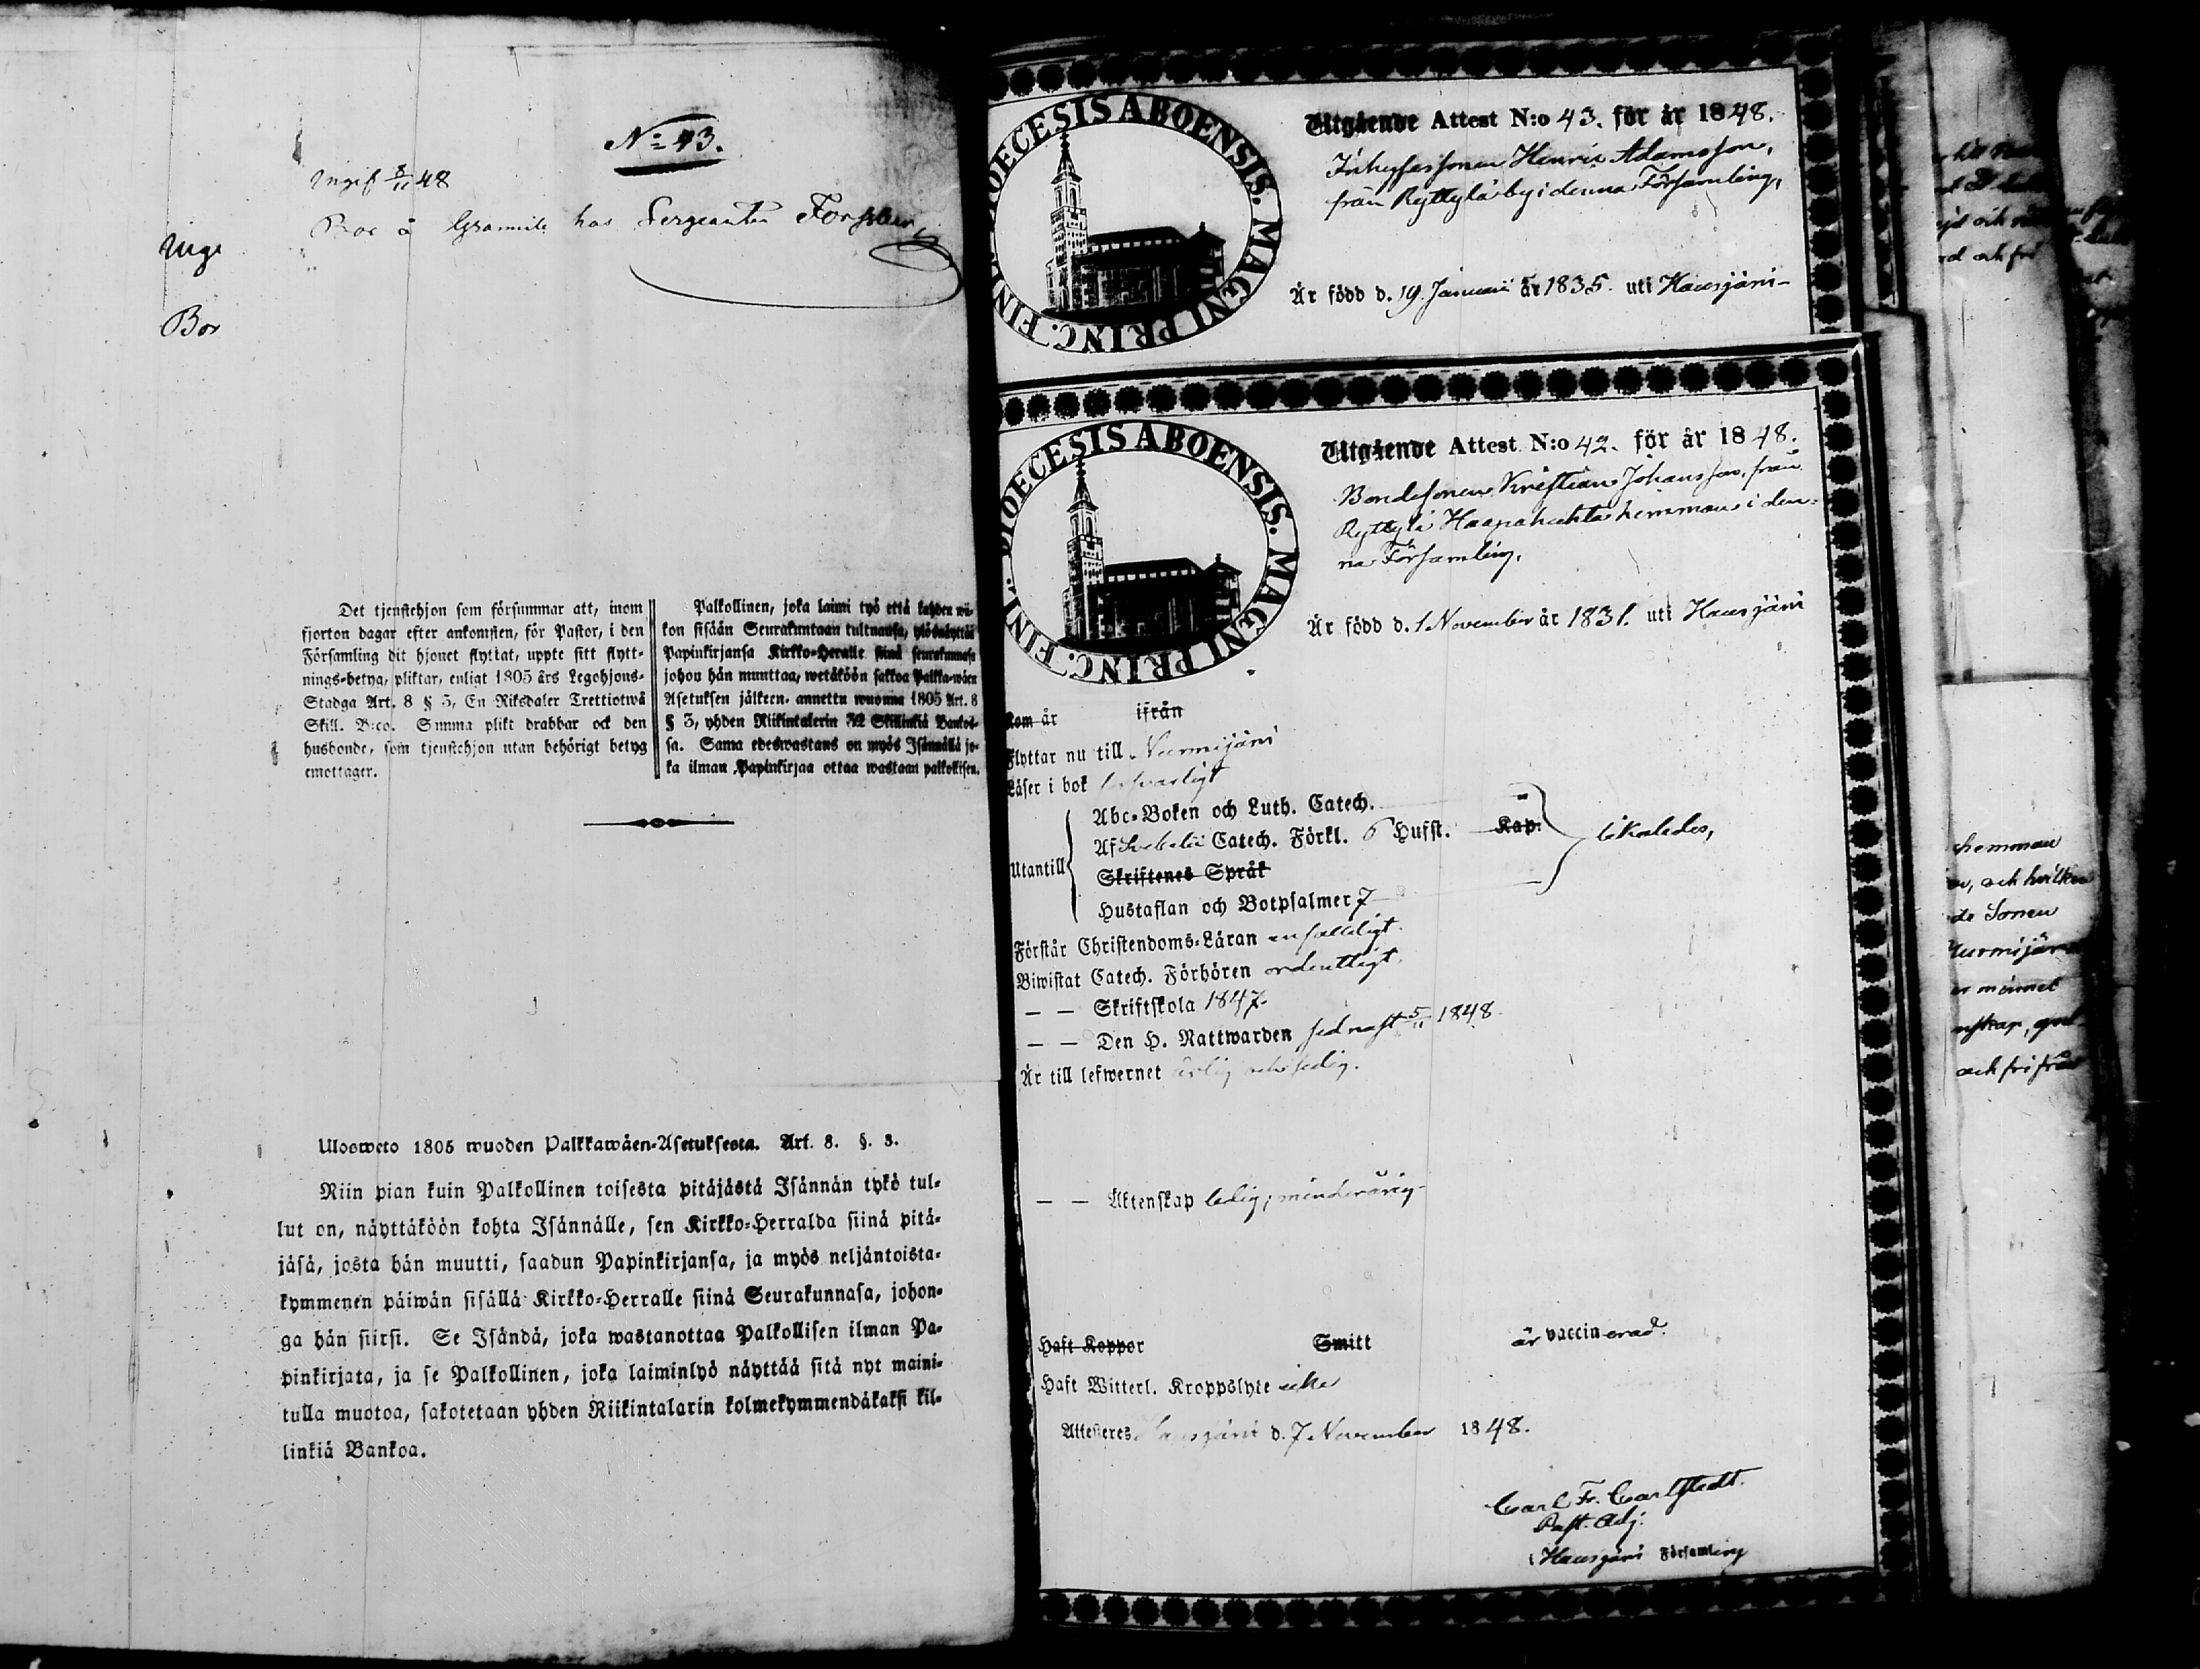 N:o 43.
Ingif 8/11 48
Bor å Gramila hos Sergeanten Forssten
Inge
Bor
Det tjenstehjon som försummar att, inom
fjorton dagar efter ankomsten, för Pastor, i den
Församling dit hjonet flyttat, uppte sitt flytt-
nings-betyg, pliktar, enligt 1805 års Legohjons-
Stadga Art. 8 § 3, En Riksdaler Trettiotwå
Skill. B:co. Summa plikt drabbar ock den
husbonde, som tjenstehjon utan behörigt betyg
emottager.
Palkollinen, joka laimi työ että kahden wii-
kon sisään Seurakuntaan tultuansa, ylösnäyttää
Papinkirjansa Kirkko-Heralle siinä seurakunnasa
johon hän muuttaa, wetäköön sakkoa Palkka-wäen
Asetuksen jälkeen, annettu wuonna 1805 Art. 8
§ 3, yhden Riikintalerin 32 Skillinkiä Bankos-
sa. Sama edeswastaus on myös Isännällä jo-
ka ilman Papinkirjaa ottaa wastaan palkollisen.
Ulosweto 1805 wuoden Palkkawäen-Asetuksesta. Art. 8. §. 3.
Niin pian kuin Palkollinen toisesta pitäjästä Isännän tykö tul-
lut on, näyttäköön kohta Isännälle, sen Kirkko-Herralda siinä pitä-
jäsä, josta hän muutti, saadun Papinkirjansa, ja myös neljäntoista-
kymmenen päiwän sisällä Kirkko-Herralle siinä Seurakunnasa, johon-
ga hän siirsi. Se Isändä, joka wastanottaa Palkollisen ilman Pa-
pinkirjata, ja se Palkollinen, joka laiminlyö näyttää sitä nyt maini-
tulla muotoa, sakotetaan yhden Riikintalarin kolmekymmendäkaksi kil-
linkiä Bankoa.
DIOECESIS ABOENSIS. MAGNI PRINC. FINL.
Utgående Attest N:o 43. för år 1848.
Inhysessonen Henric Adamsson,
från Ryttylä by i denna Församling,
Är född d. 19 Januari år 1835. uti Hausjärvi
DIOECESIS ABOENSIS. MAGNI PRINC. FINL.
Utgående Attest N:o 42. för år 1848.
Bondesonen Kristian Johansson, från
Ryttylä Haapahuhta hemman i den-
na Församling,
Är född d. 1 November år 1831. uti Hausjärvi
Kom år ifrån
Flyttar nu till Nurmijärvi
Läser i bok försvarligt
Utantill
Abc-Boken och Luth. Catech.
Af Svebelii Catech. Förkl. 6 Hufst. Kap.
Skriftenes Språk
Hustaflan och Botpsalmer 7
likaledes,
Förstår Christendoms-Läran enfaldigt.
Biwistat Catech. Förhören ordentligt,
— — Skriftskola 1847.
— — Den H. Nattwarden sednast 5/11 1848
Är till lefwernet ärlig och sedig.
— — Äktenskap ledig, minderårig
Haft Koppor Smitt är vaccinerad.
Haft Witterl. Kroppslyte icke
Attesteres Hausjärvi d. 7 November 1848.
Carl Fr. Carlstedt.
Past. Adj.
i Hausjärvi Församling
hemman
och hvilken
de Sonen
Nurmijärvi
och fri från